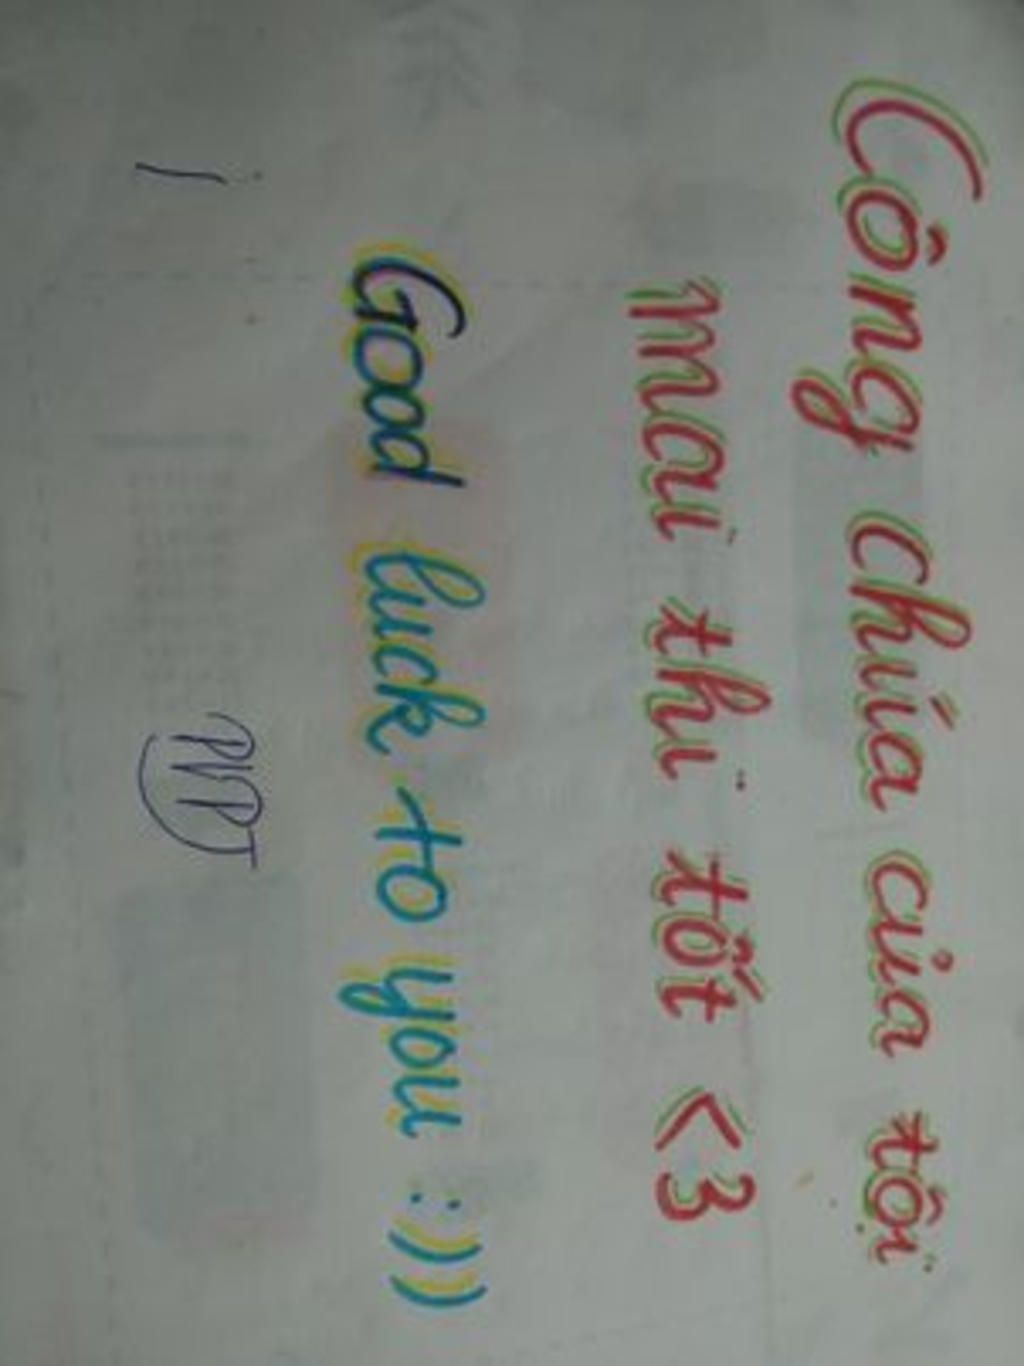 Công chúa của tôi
mai thi tốt <3
Good luck to you :))